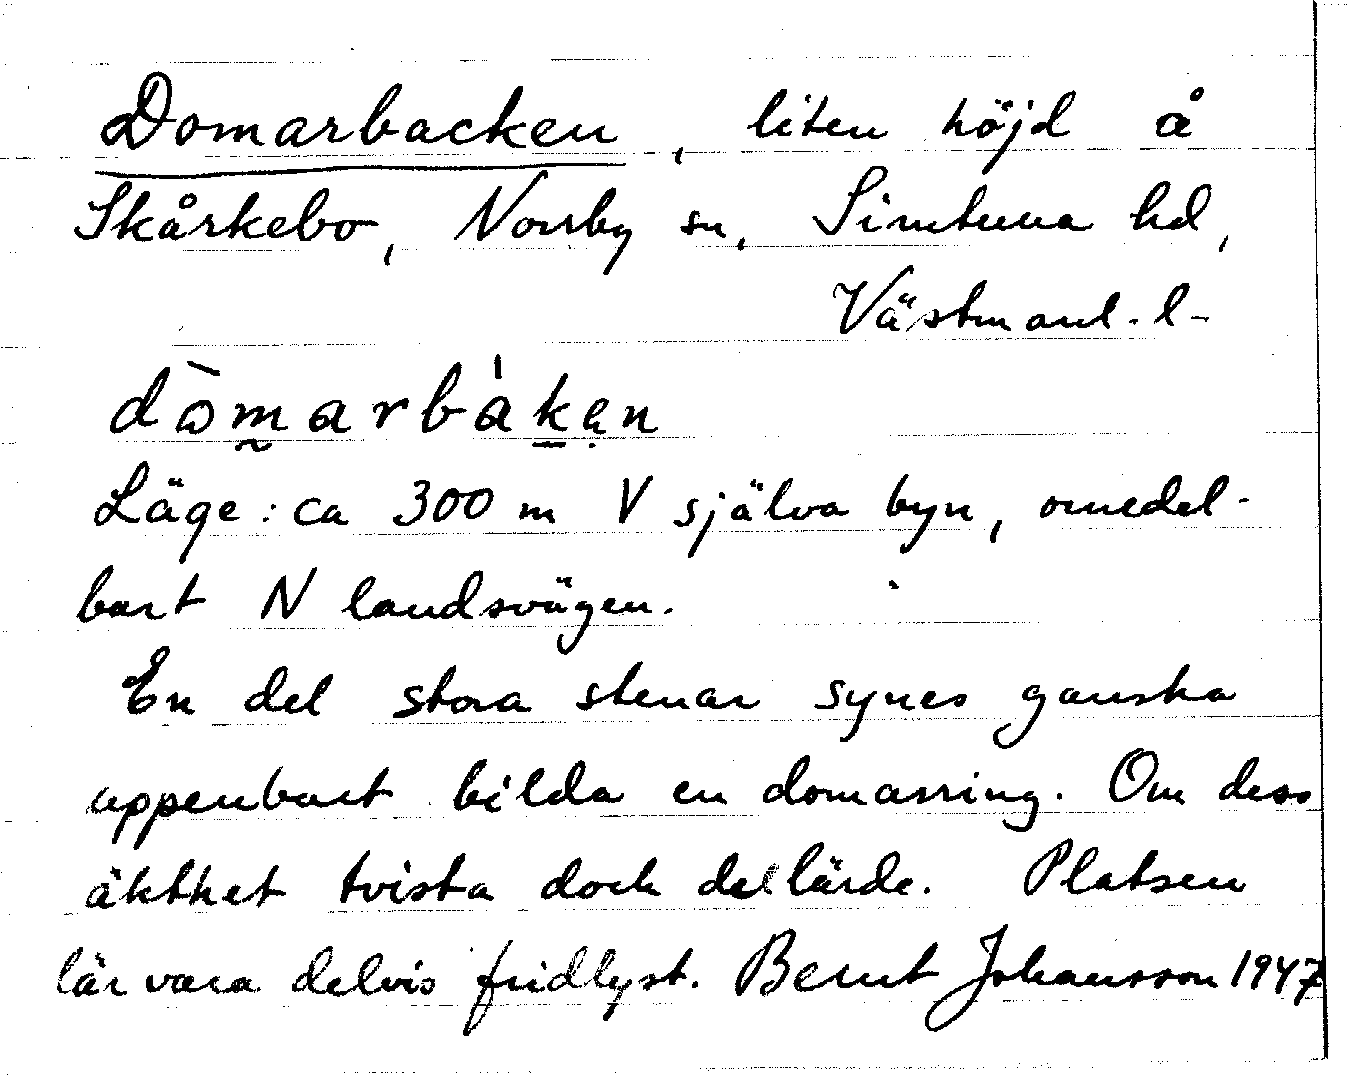 Domarbacken, liten höjd å
Skårkebo, Norrby sn, Simtuna hd,
Västmanl. l-
dòmarbàken
Läge: ca 300 m V själva byn, omedel-
bart N landsvägen.
En del stora stenar synes ganska
uppenbart bilda en domarring. Om dess
äkthet tvista dock de lärde. Platsen
lär vara delvis fridlyst. Bernt Johansson 1947